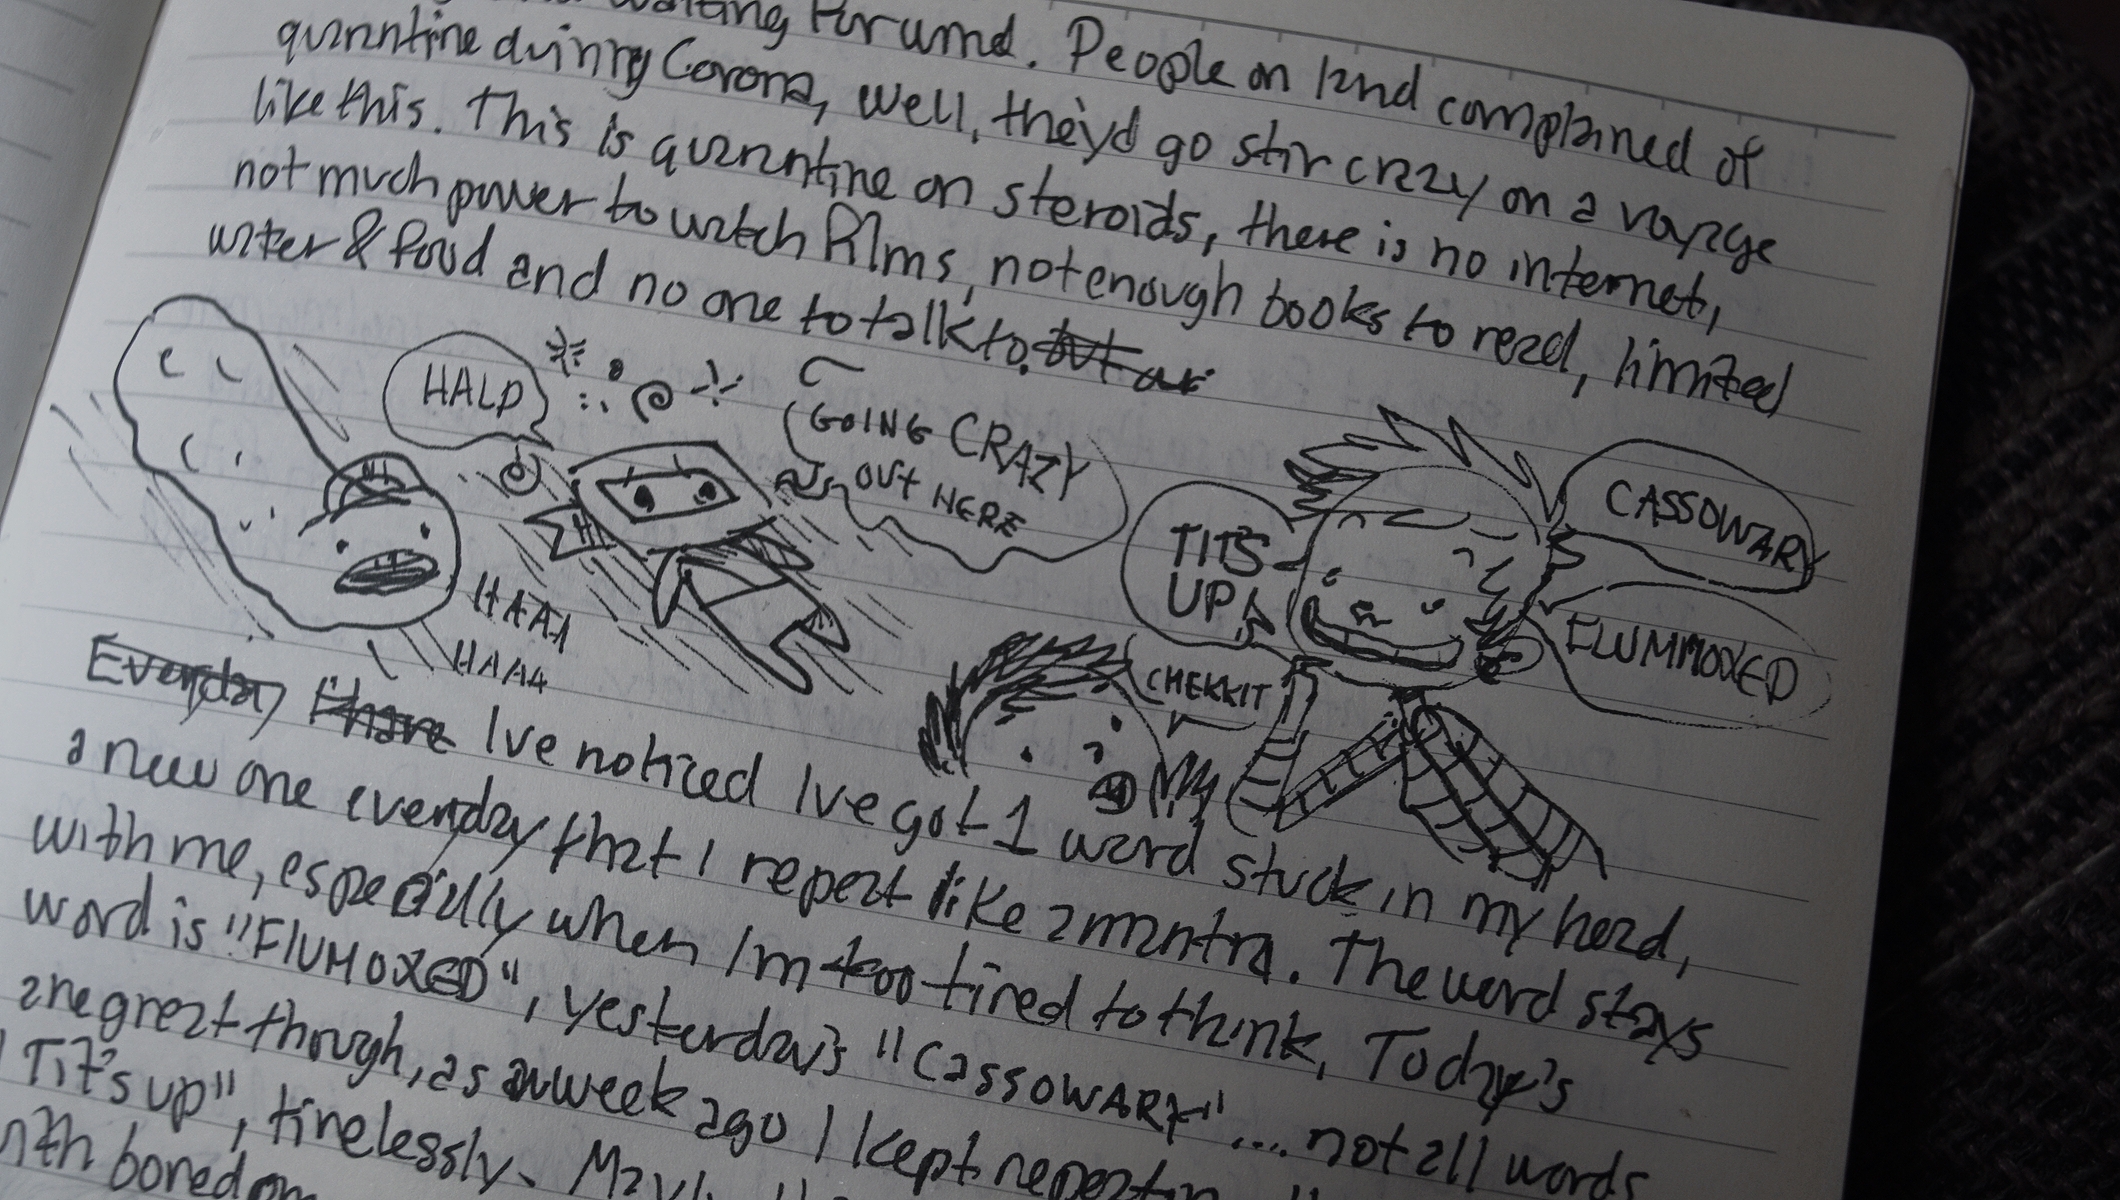 waiting around. People on land complained of
quarantine during Corona, well, they'd go stir crazy on a voyage
like this. This is quarantine on steroids, there is no internet,
not much power to watch films, not enough books to read, limited
water & food and no one to talk to. but
HALP
GOING CRAZY
OUT HERE
CASSOWARY
TITS
UP
FLUMMOXED
CHEKKIT
HAAA
HAAA
Everyday I have Ive noticed Ive got 1 word stuck in my head,
a new one everyday that I repeat like a mantra. The word stays
with me, especially when I'm too tired to think, Today's
word is "FlUMOXED", yesterday's "CassowARY"... not all words
are great though, as a week ago I kept repeating
"Tit's up", tirelessly.
boredom